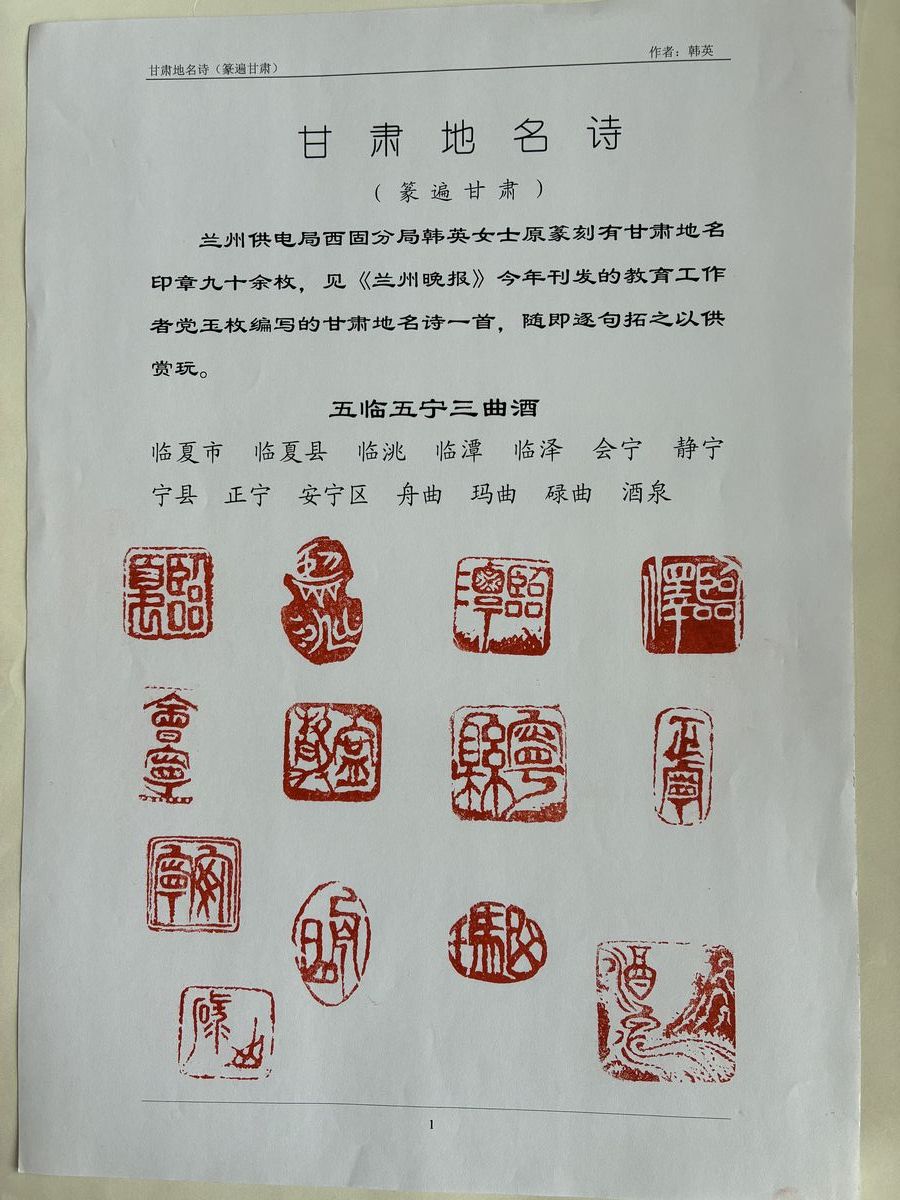 甘肃地名诗（篆遍甘肃）
作者：韩英
甘肃地名诗
（篆遍甘肃）
兰州供电局西固分局韩英女士原篆刻有甘肃地名
印章九十余枚，见《兰州晚报》今年刊发的教育工作
者党玉枚编写的甘肃地名诗一首，随即逐句拓之以供
赏玩。
五临五宁三曲酒
临夏市 临夏县 临洮 临潭 临泽 会宁 静宁
宁县 正宁 安宁区 舟曲 玛曲 碌曲 酒泉
臨夏
臨潭
臨澤
會寧
寧縣
正寧
安寧
瑪曲
酒泉
碌曲
1